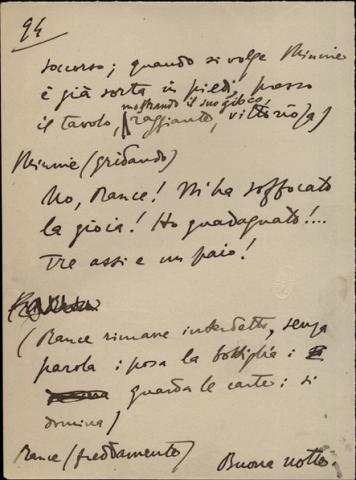 94
soccorso; quando si volge Minnie
è già sorta in piedi, presso
mostrando il suo gioco,
il tavolo, raggiante, vittoriosa)
Minnie (gridando)
No, Rance! Mi ha soffocato
la gioia! Ho guadagnato!...
Tre assi e un paio!
(Rance rimane interdetto, senza
parola: posa la bottiglia:
guarda le carte: si
domina)
Rance (freddamente)
Buona notte.